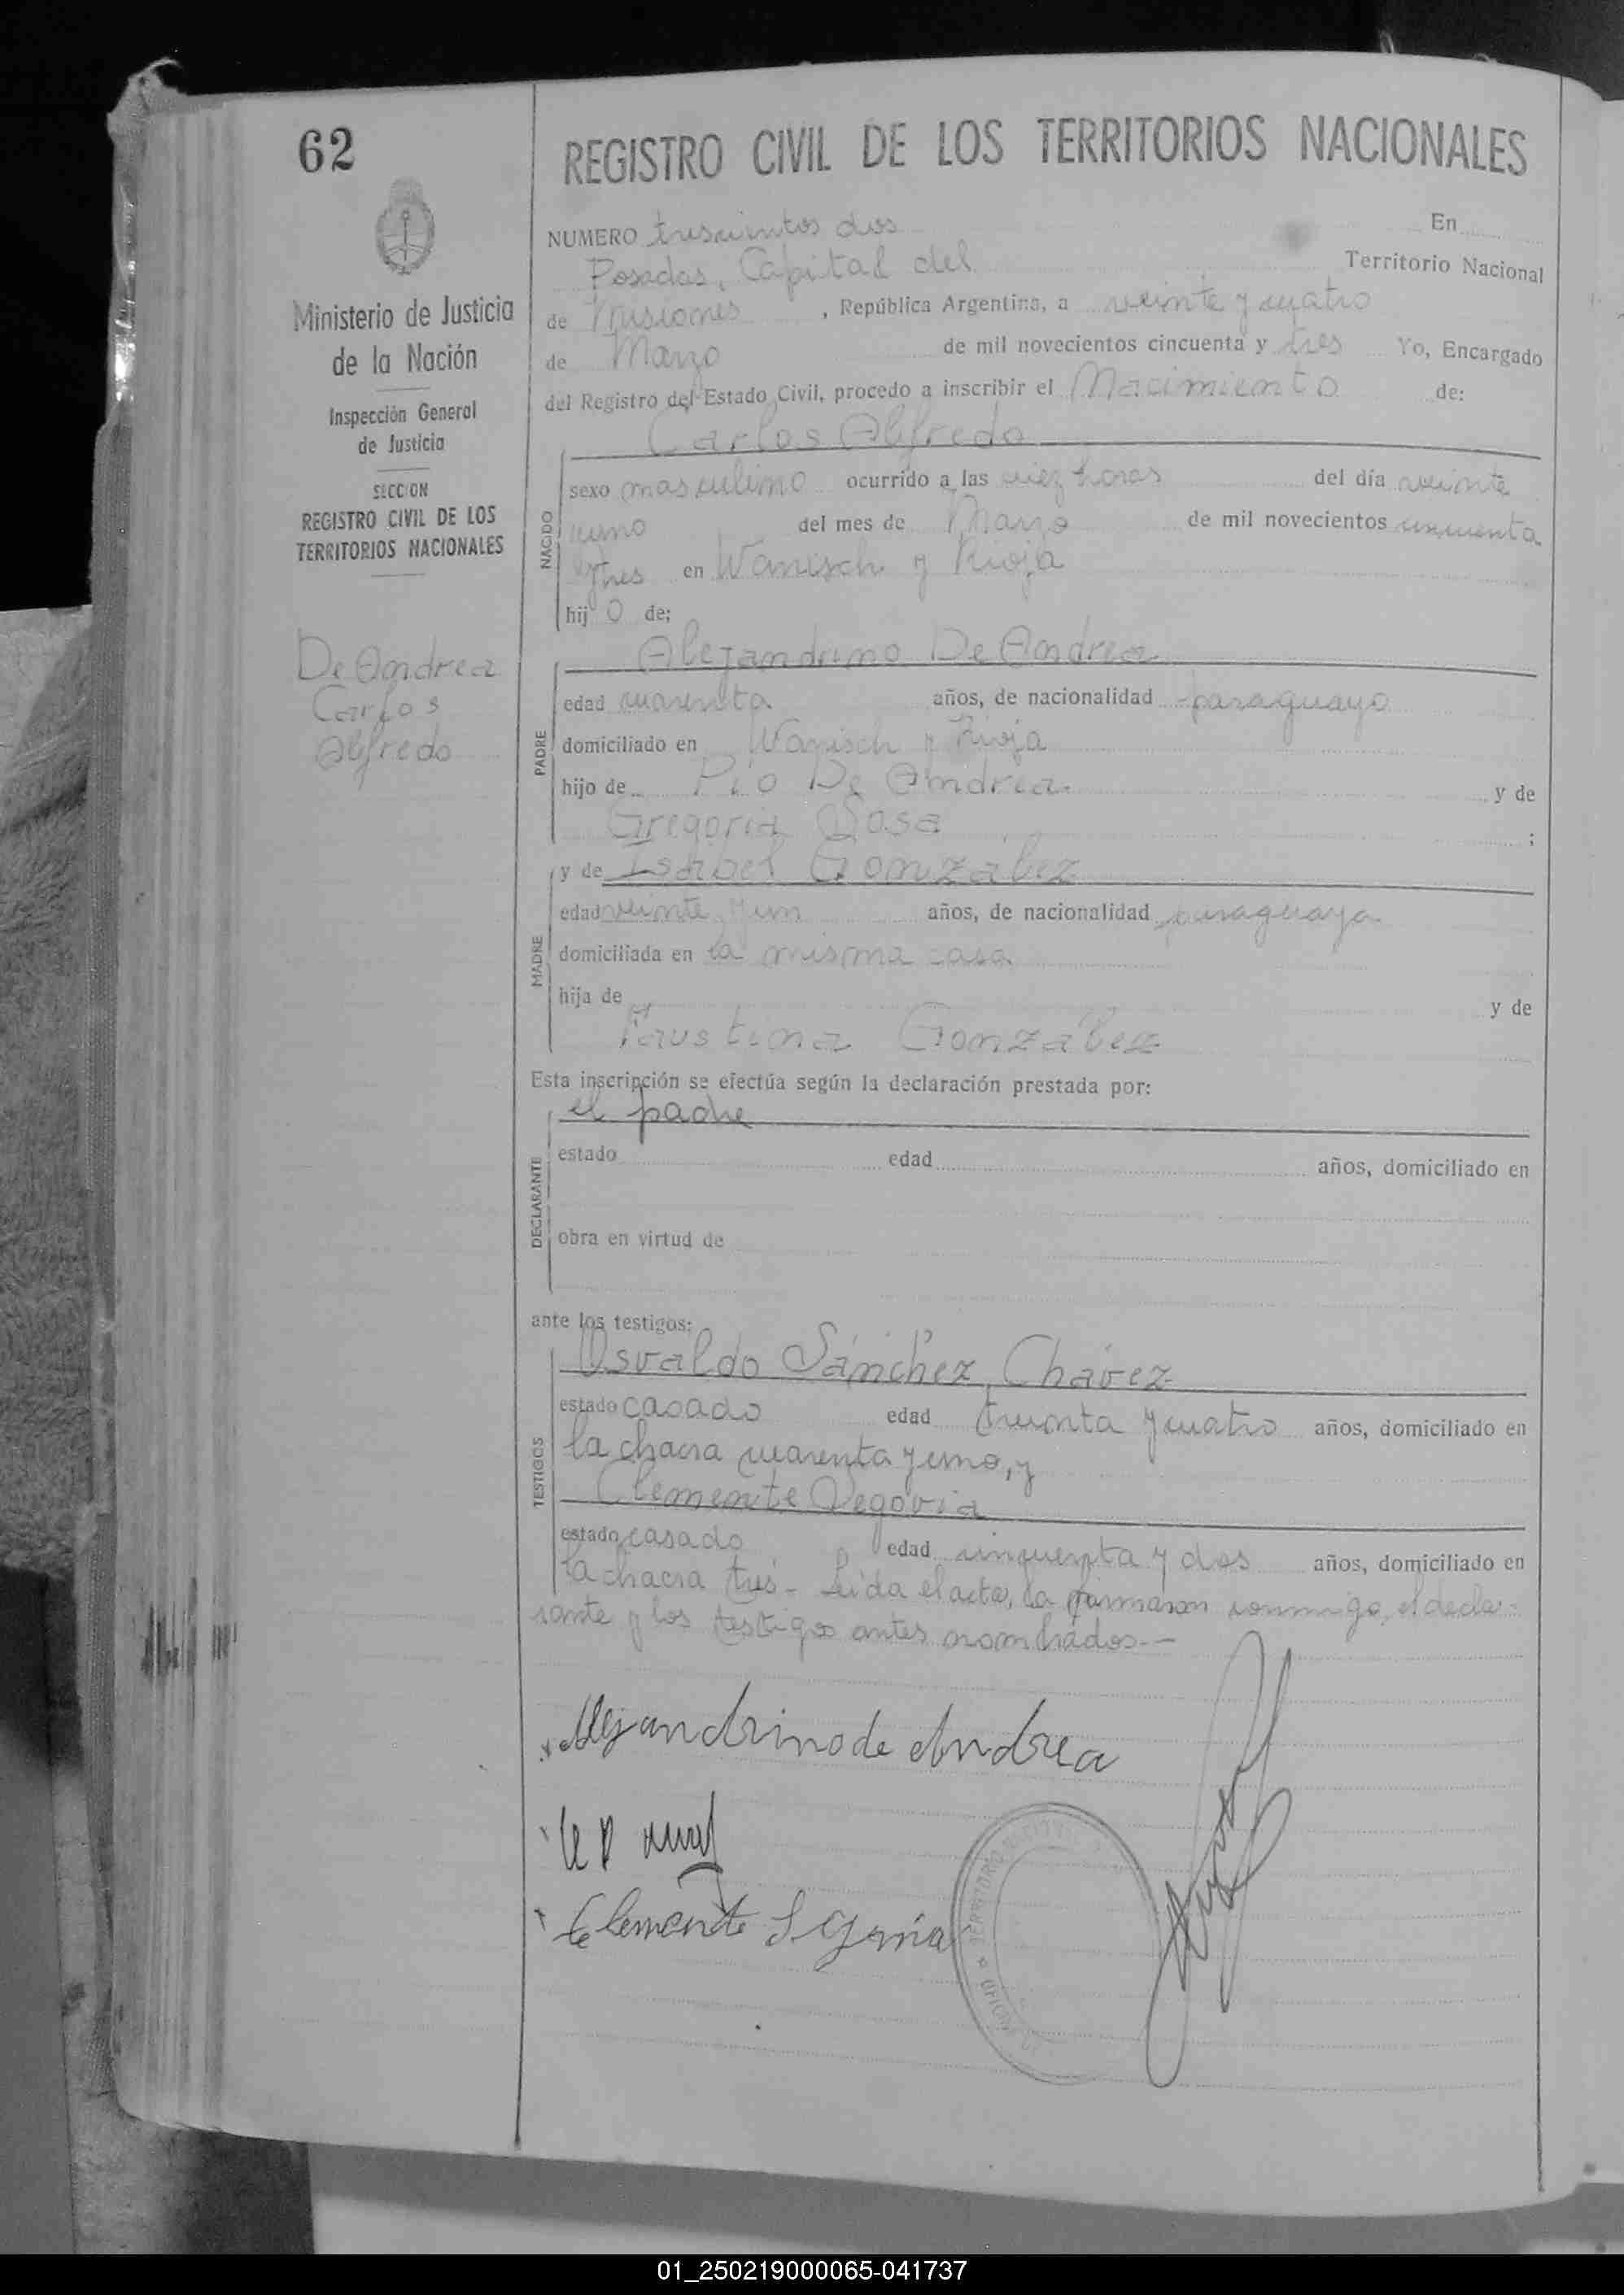 62
REGISTRO CIVIL DE LOS TERRITORIOS NACIONALES
NUMERO trescientos dos En
Posadas, Capital del Territorio Nacional
de Misiones, República Argentina, a veinte y cuatro
de Marzo de mil novecientos cincuenta y tres Yo, Encargado
del Registro del Estado Civil, procedo a inscribir el Nacimiento de:
Carlos Alfredo
NACIDO
sexo masculino ocurrido a las diez horas del día veinte
y uno del mes de Marzo de mil novecientos cincuenta
y tres en Wanisch y Rioja
hijo de:
Ministerio de Justicia
de la Nación
Inspección General
de Justicia
SECCION
REGISTRO CIVIL DE LOS
TERRITORIOS NACIONALES
De Andrea
Carlos
Alfredo
Alejandrino De Andrea
PADRE
edad cuarenta años, de nacionalidad paraguayo
domiciliado en Wanisch y Rioja
hijo de Pío De Andrea y de
Gregoria Sosa ;
y de Isabel González
MADRE
edad veinte y un años, de nacionalidad paraguaya
domiciliada en la misma casa
hija de y de
Faustina González
Esta inscripción se efectúa según la declaración prestada por:
el padre
DECLARANTE
estado edad años, domiciliado en
obra en virtud de
ante los testigos:
Osvaldo Sánchez Chávez
TESTIGOS
estado casado edad treinta y cuatro años, domiciliado en
la chacra cuarenta y uno, y
Clemente Segovia
estado casado edad cinquenta y dos años, domiciliado en
la chacra tres- Leida el acta, la firmaron conmigo, el decla-
rante y los testigos antes nombrados.-
Alejandrino de Andrea
Clemente Segovia
TERRITORIO
OFICINA
01_250219000065-041737